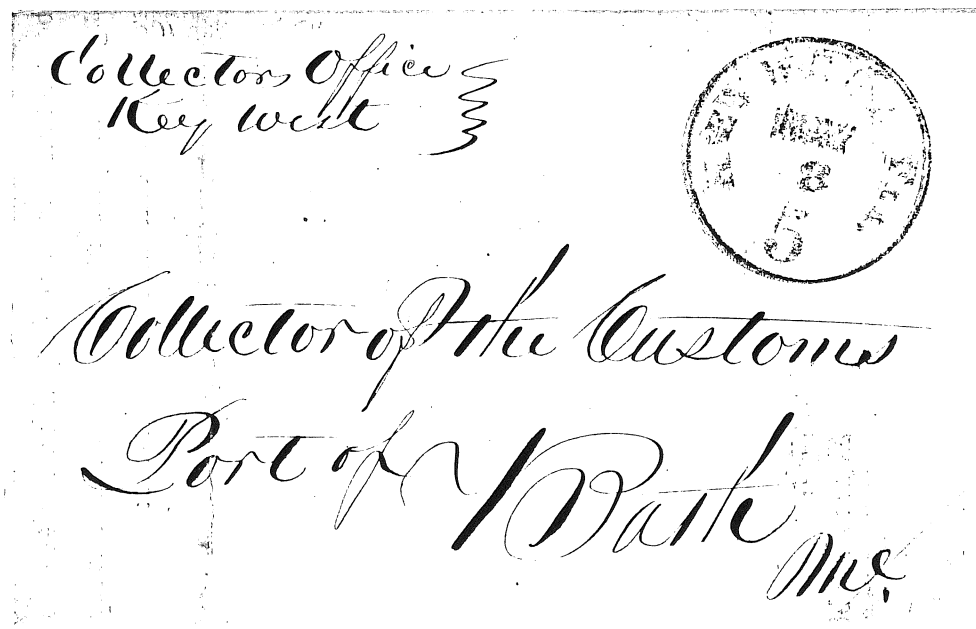 Collectors Office
Key West
KEY WEST
MAY
8
5
Collector of the Customs
Port of Bath
Me.